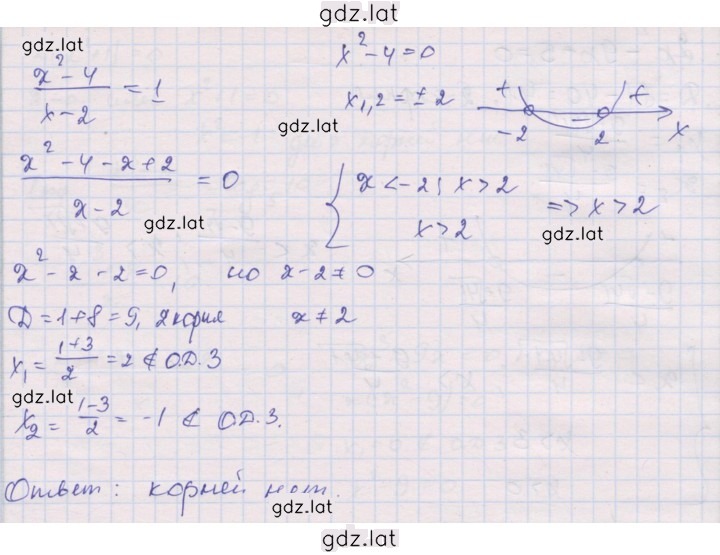 gdz.lat
gdz.lat
(x² - 4)/(x - 2) = 1
x² - 4 = 0
x₁,₂ = ± 2
gdz.lat
+ - +
-2 2 x
(x² - 4 - x + 2)/(x - 2) = 0
{ x < -2; x > 2
x > 2
=> x > 2
gdz.lat
gdz.lat
x² - x - 2 = 0, но x - 2 ≠ 0
D = 1 + 8 = 9, 2 корня x ≠ 2
x₁ = (1+3)/2 = 2 ∉ О.Д.З
gdz.lat
x₂ = (1-3)/2 = -1 ∉ О.Д.З.
Ответ: корней нет.
gdz.lat
gdz.lat